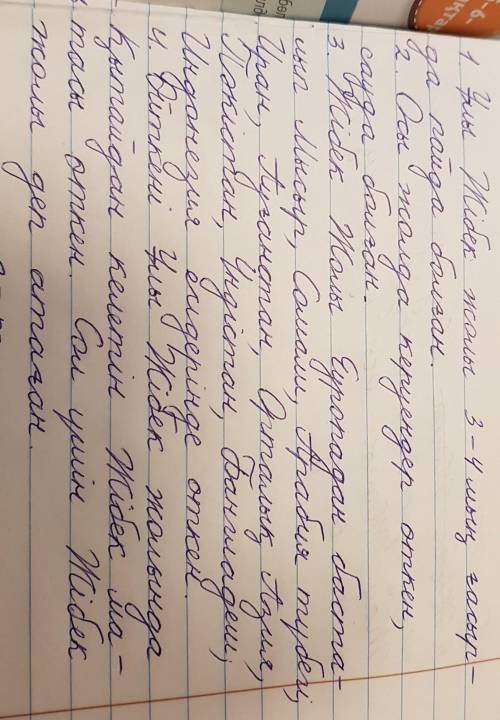 1. Ұлы Жібек жолы 3-4 мың ғасыр-
да пайда болған.
2. Осы жолда керуендер өткен,
сауда болған.
3. Жібек Жолы Еуропадан баста-
лып Мысыр, Сомали, Арабия түбегі,
Иран, Ауғанстан, Орталық Азия,
Пәкістан, Үндістан, Бангладеш,
Индонезия елдерінде өткен.
4. Өйткені Ұлы Жібек жолында
Қытайдан келетін Жібек ма-
тасы өткен. Сол үшін Жібек
жолы деп атаған.